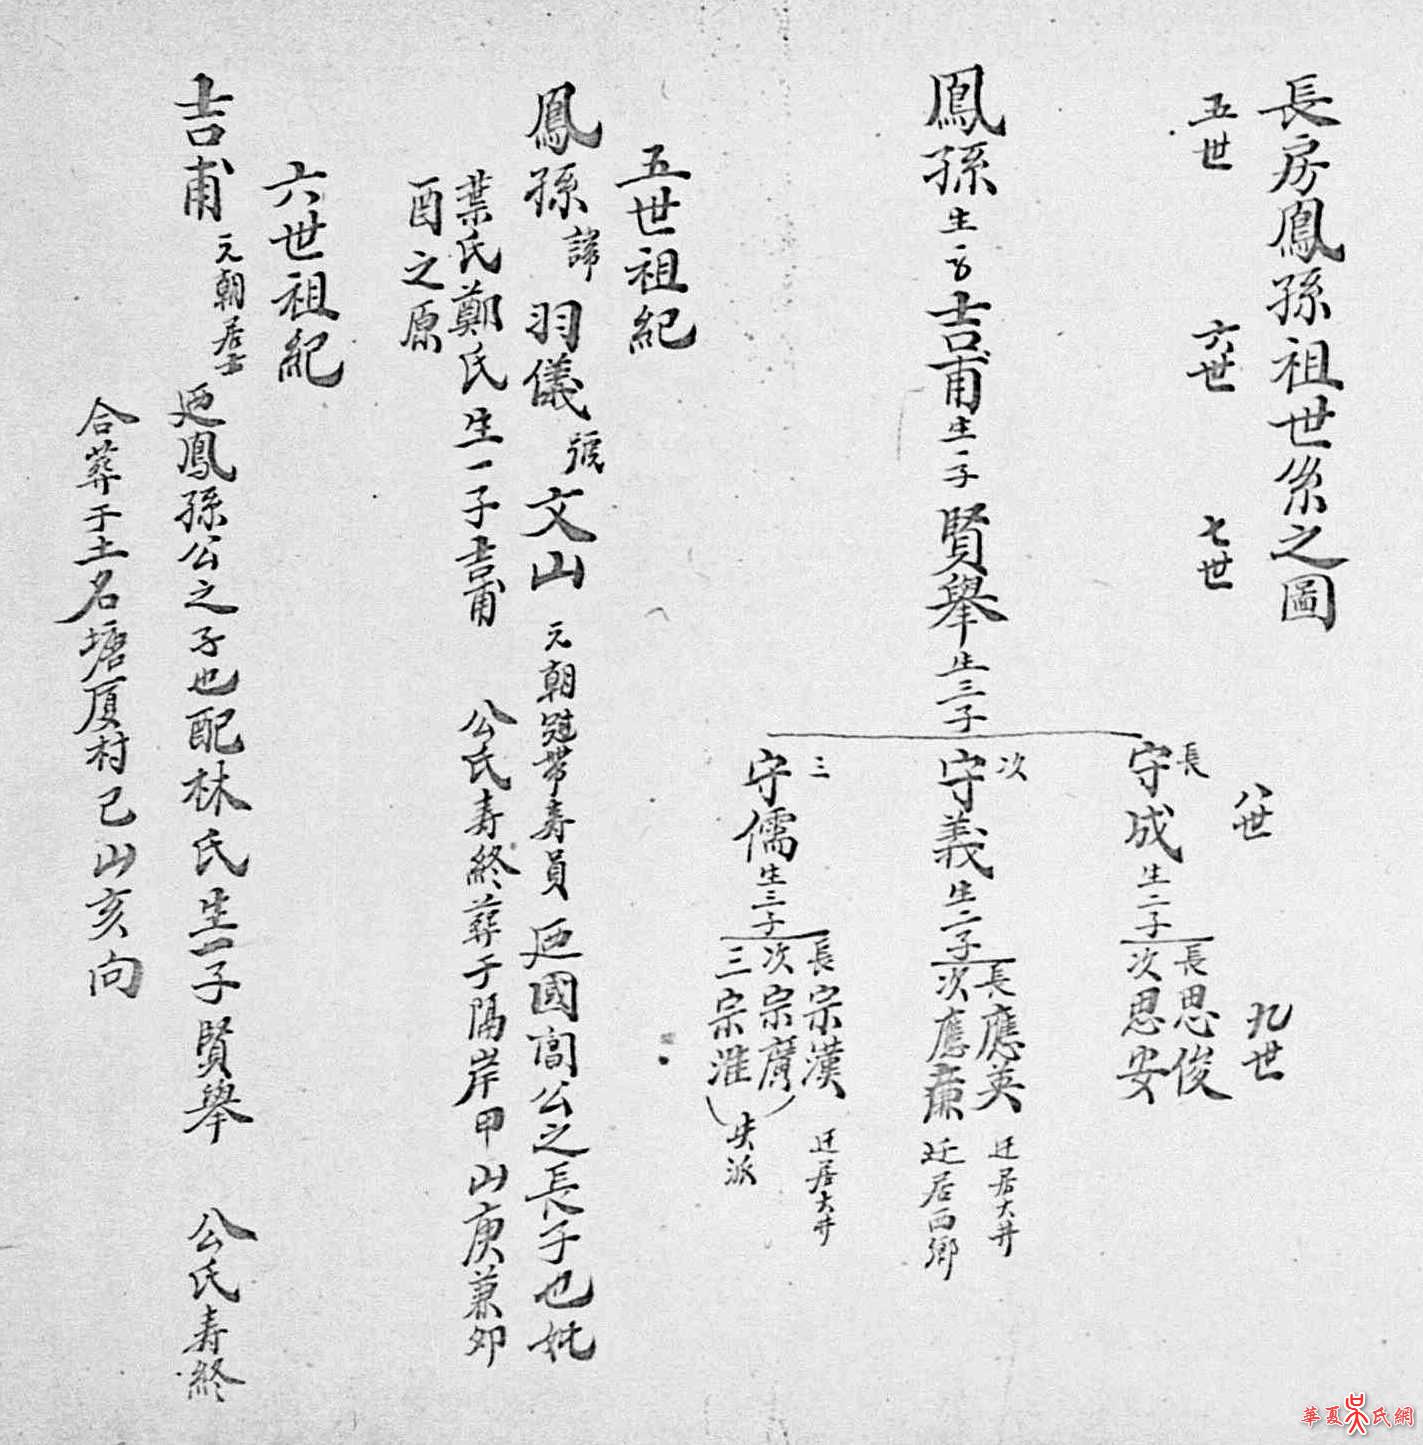 長房鳳孫祖世系之圖
五世 六世 七世
八世 九世
鳳孫生一子吉甫生一子賢舉生三子
長守成生二子
長思俊
次思安
次守義生二子
長應英 迁居大井
次應廉 迁居西鄉
三守儒生三子
長宗漢 迁居大井
次宗廣
三宗淮
(失派)
五世祖紀
鳳孫諱羽儀號文山元朝冠帶寿員廼國誾公之長子也妣
葉氏鄭氏生一子吉甫 公氏寿終葬于隔岸甲山庚兼卯
酉之原
六世祖紀
吉甫元朝居士廼鳳孫公之子也配林氏生一子賢舉 公氏寿終
合葬于土名塘厦村己山亥向
華夏吴氏網